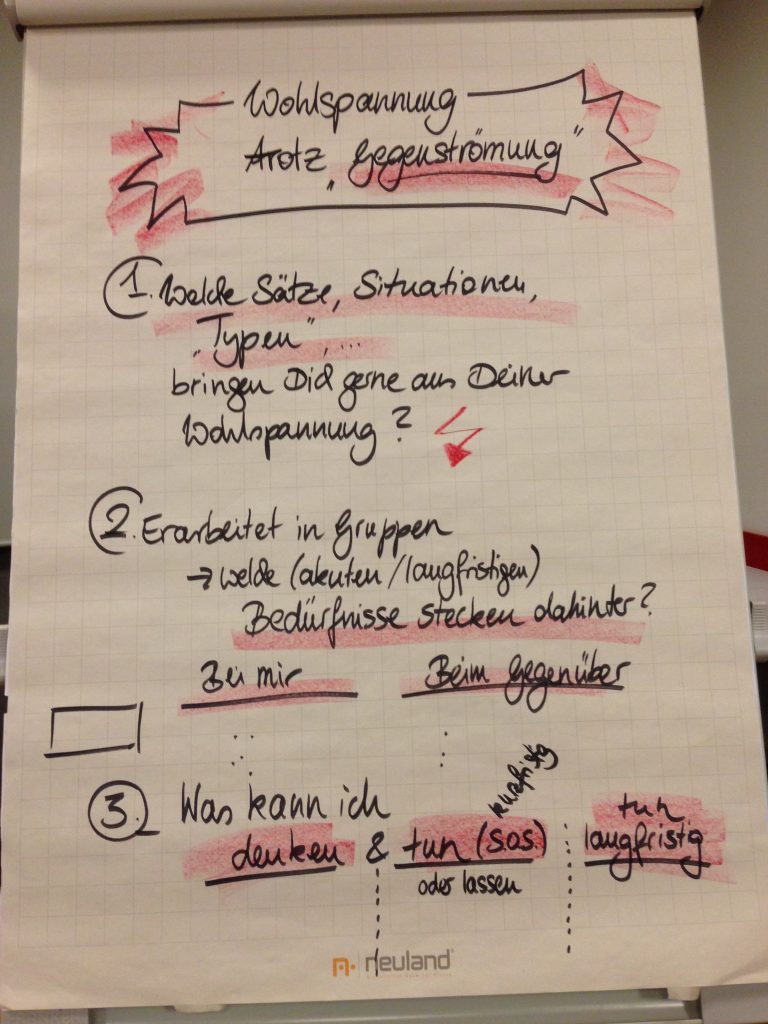 Wohlspannung
Trotz „Gegenströmung"
1. Welche Sätze, Situationen,
„Typen", ...
bringen Dich gerne aus Deiner
Wohlspannung?
2. Erarbeitet in Gruppen
→ Welche (akuten/langfristigen)
Bedürfnisse stecken dahinter?
Bei mir Beim Gegenüber
3. Was kann ich
kurzfristig
denken & tun (SOS)
oder lassen
tun
langfristig
neuland